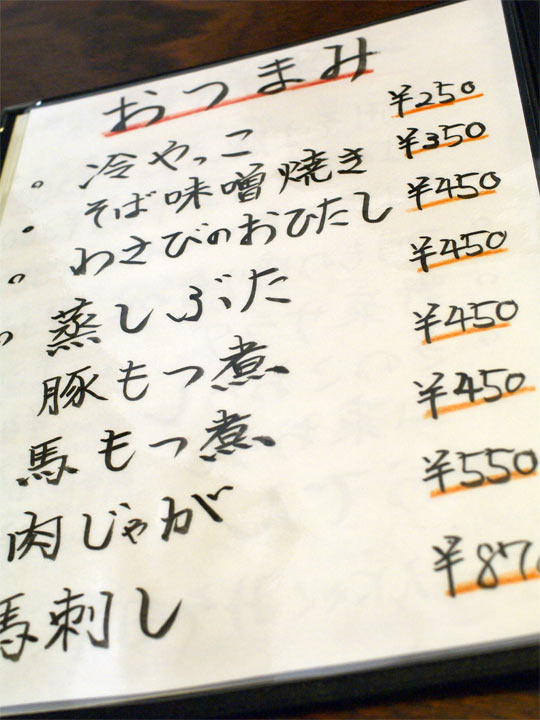 おつまみ
冷やっこ ¥250
そば味噌焼き ¥350
わさびのおひたし ¥450
蒸しぶた ¥450
豚もつ煮 ¥450
馬もつ煮 ¥450
肉じゃが ¥550
馬刺し ¥870